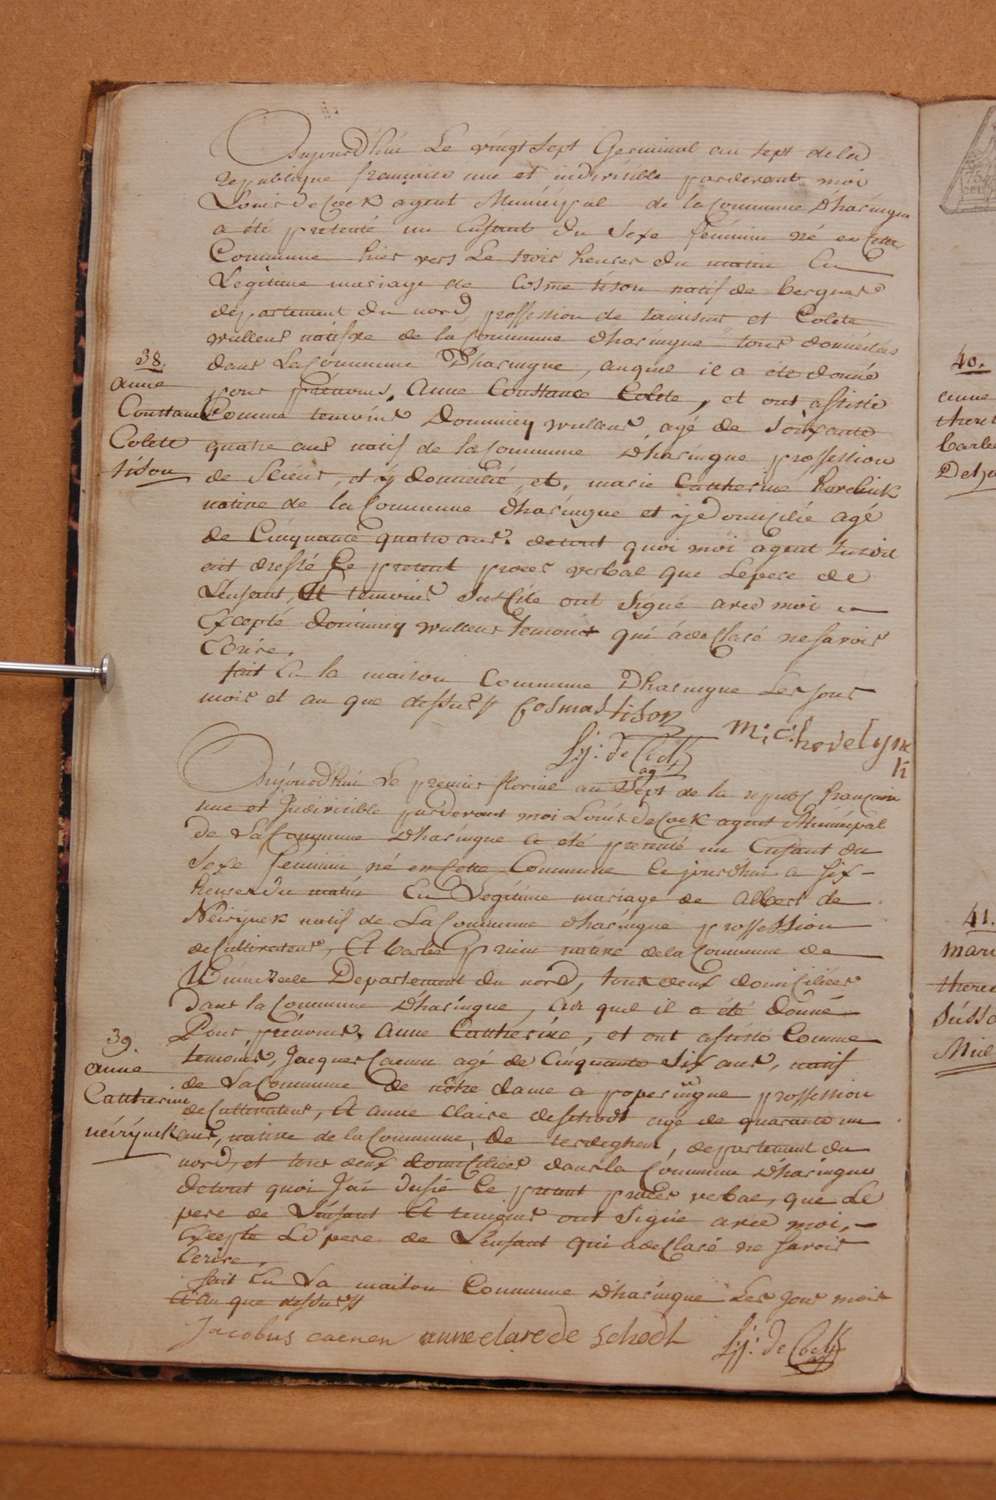 Aujourd'hui Le vingt sept Germinal an sept de la
republique francaise une et indivisible pardevant moi
Louis De Cock agent Municipal de la Commune d'haringue
a été presenté un Enfant du Sexe féminin né en Cette
Commune hier vers Le trois heures du matin En
Légitime mariage de Cosme tison natif de bergues
département du nord, profession de et Colete
wullens native de la Commune d'haringue tous domiciliés
dans La Commune D'haringue, auquel il a été donné
38.
pour prenoms, Anne Constance Colete, et ont assisté
anne
Constance
Comme temoins Dominiq wullens, agé de Soixante
Colete
quatre ans natif de la Commune d'haringue profession
tison
de et y domicilié, et, marie Catherine
native de la Commune d'haringue et y domicilié agé
de Cinquante quatre ans. de tout quoi moi agent
ont dressé Le present procés verbal que Le pere de
L'enfant, Et temoins Susdite ont Signé avec moi
Excepté dominiq wullens temoins qui à declaré ne Savoir
Ecrire.
fait En la maison Commune D'haringue Les jour
mois et an que dessus Cosmas tison
m: c: hovelynck
Lij: de Cock
ag
Aujourd'hui Le premier floreal an Sept de la repub française
une et Indivisible pardevant moi Louis De Cock agent Municipal
de La Commune d'haringue a été presenté un Enfant du
Sexe feminin né en Cette Commune Ce jourdhui a Six
heures du matin En Legitime mariage de Albert de
Neirynck natif de La Commune d'haringue profession
de Cultivateur, Et barbe native de la Commune de
Winnezeele Departement du nord, tous deux domiciliées
dans la Commune d'haringue, au quel il a été donné
39.
Pour prénoms, Anne Catherine, et ont assisté Comme
anne
temoins, Jacques Caenen agé de Cinquante Six ans, natif
Catherine
de La Commune de nôtre dame a poperingue profession
neirynck
de Cultivateur, Et anne claire deschodt agé de quarante un
ans, native de la Commune, de terdeghem, departement du
nord, et tous deux domiciliées dans la Commune d'haringue
de tout quoi J'ai dressé Le present procés verbal, que Le
pere de L'enfant Et temoins ont Signé avec moi,
Excepté Le pere de L'enfant qui a declaré ne Savoir
Ecrire.
fait En La maison Commune d'haringue Les jour mois
et an que dessus
Jacobus caenen anne clare de schodt Lij: de Cock